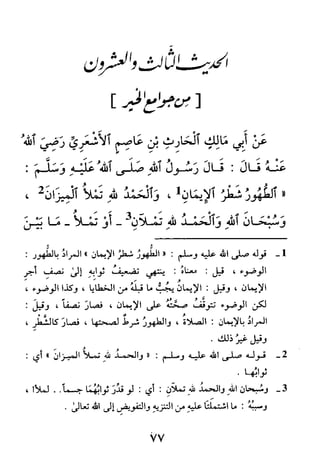 الحديث الثالث والعشرون
[ من جوامع الخير ]
عَنْ أَبِي مَالِكٍ ٱلْحَارِثِ بْنِ عَاصِمٍ ٱلْأَشْعَرِيِّ رَضِيَ ٱللهُ
عَنْهُ قَالَ : قَالَ رَسُولُ ٱللهِ صَلَى ٱللهُ عَلَيْهِ وَسَلَّمَ :
« ٱلطُّهُورُ شَطْرُ ٱلْإِيمَانِ1 ، وَٱلْحَمْدُ للهِ تَمْلَأُ ٱلْمِيزَانَ2 ،
وَسُبْحَانَ ٱللهِ وَٱلْحَمْدُ للهِ تَمْلَآنِ3 - أَوْ تَمْلَأُ - مَا بَيْنَ
1 - قوله صلى الله عليه وسلم : « الطُهورُ شطرُ الإيمان » المرادُ بالطُهور :
الوضوء ، قيل : معناهُ : ينتهي تضعيفُ ثوابِهِ إلى نصفِ أجرِ
الإيمان ، وقيل : الإيمانُ يجُبُّ ما قبلَهُ من الخطايا ، وكذا الوضوء ،
لكن الوضوء تتوقَّفُ صحَّتُهُ على الإيمان ، فصارَ نصفاً ، وقيلَ :
المرادُ بالإيمان : الصلاةُ ، والطهورُ شرطٌ لصحتها ، فصارَ كالشَّطْرِ ،
وقيل غيرُ ذلك .
2 - قوله صلى الله عليه وسلم : « والحمد لله تملأُ الميزانَ » أي :
ثوابُها .
3 - وسُبحانَ الله والحمد لله تملآن : أي : لو قُدّرَ ثوابُهُمَا جسماً.. لملأا ،
وسببُهُ : ما اشتملتا عليه من التنزيهِ والتفويضِ إلى الله تعالىٰ .
٧٧